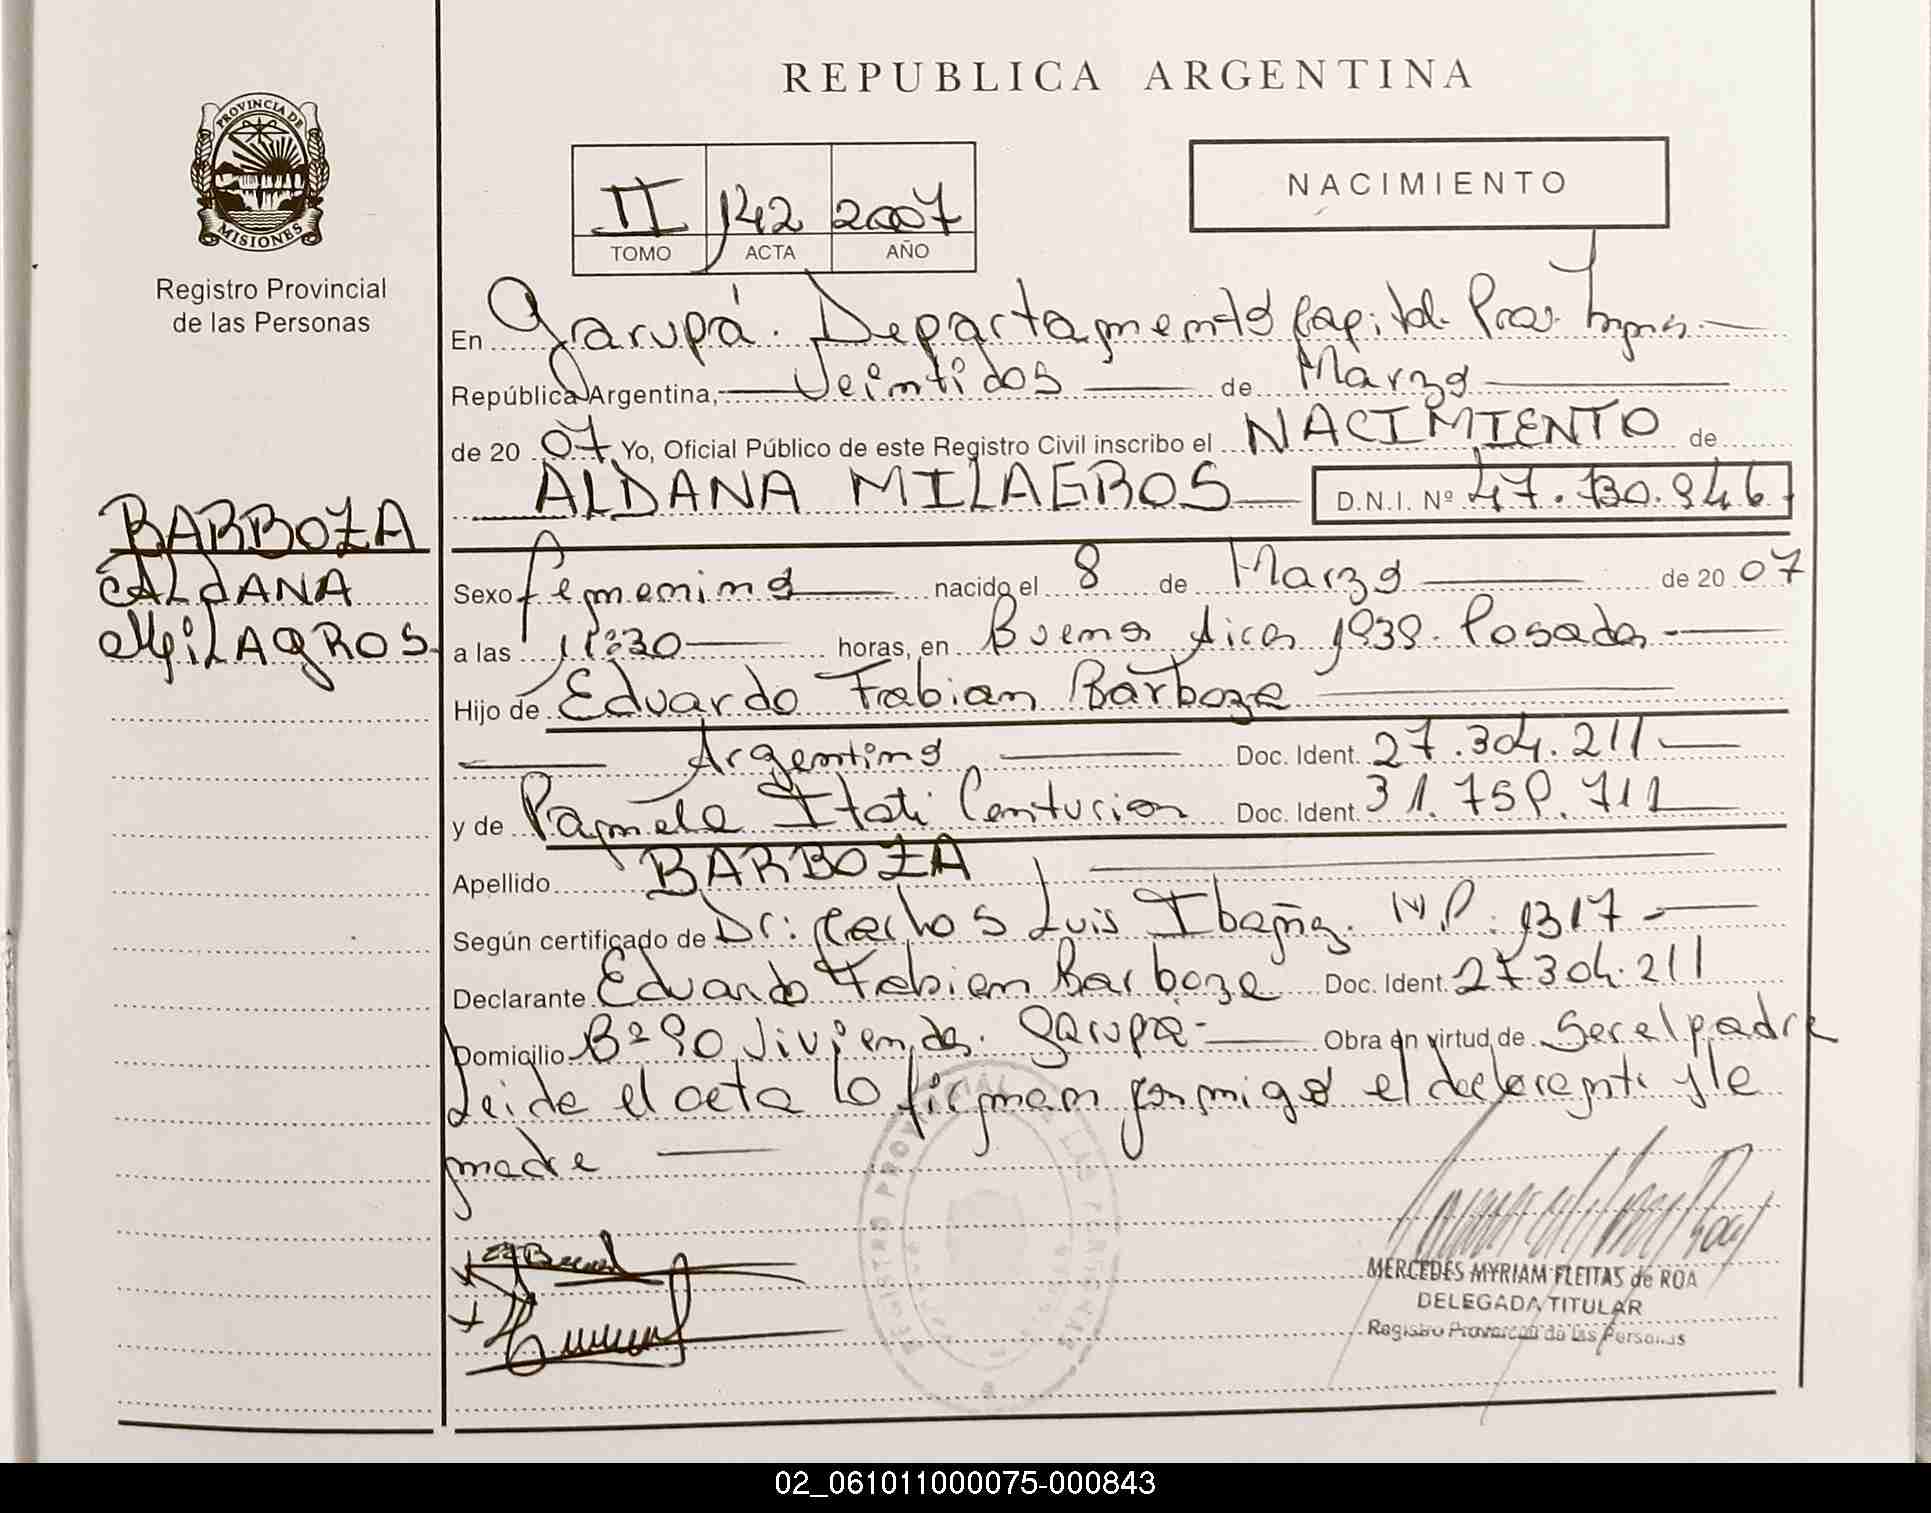 REPUBLICA ARGENTINA
PROVINCIA DE MISIONES
Registro Provincial
de las Personas
II 142 2007
TOMO ACTA AÑO
NACIMIENTO
En Garupá. Departamento Capital. Prov.
República Argentina, Veintidos de Marzo
de 2007 Yo, Oficial Público de este Registro Civil inscribo el NACIMIENTO de
ALDANA MILAGROS D.N.I. Nº 47.730.946
BARBOZA
ALDANA
MILAGROS
Sexo femenino nacido el 8 de Marzo de 2007
a las 11:30 horas, en Buenos Aires 1939. Posadas
Hijo de Eduardo Fabian Barboza
Argentino Doc. Ident. 27.304.211
y de Pamela Itati Centurion Doc. Ident. 31.759.711
Apellido BARBOZA
Según certificado de Dr: Carlos Luis Ibañez. M.P. 1317
Declarante Eduardo Fabian Barboza Doc. Ident. 27.304.211
Domicilio Bº 90 Viviendas. Garupa Obra en virtud de Ser el padre
Leida el acta lo firman conmigo el declarante y la
madre
MERCEDES MYRIAM FLEITAS de ROA
DELEGADA TITULAR
Registro Provincial de las Personas
02_061011000075-000843